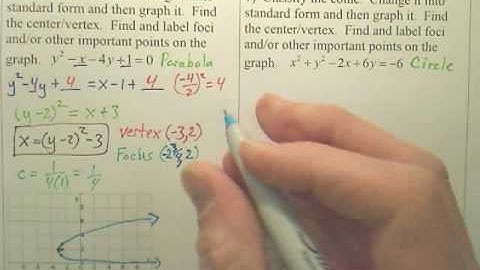 standard form and then graph it. Find
the center/vertex. Find and label foci
and/or other important points on the
graph. y² - x - 4y + 1 = 0 Parabola
y² - 4y + 4 = x - 1 + 4 (-4/2)² = 4
(y-2)² = x + 3
x = (y-2)² - 3
vertex (-3,2)
Focus (-2 3/4, 2)
c = 1/4(1) = 1/4
standard form and then graph it. Find
the center/vertex. Find and label foci
and/or other important points on the
graph. x² + y² - 2x + 6y = -6 Circle